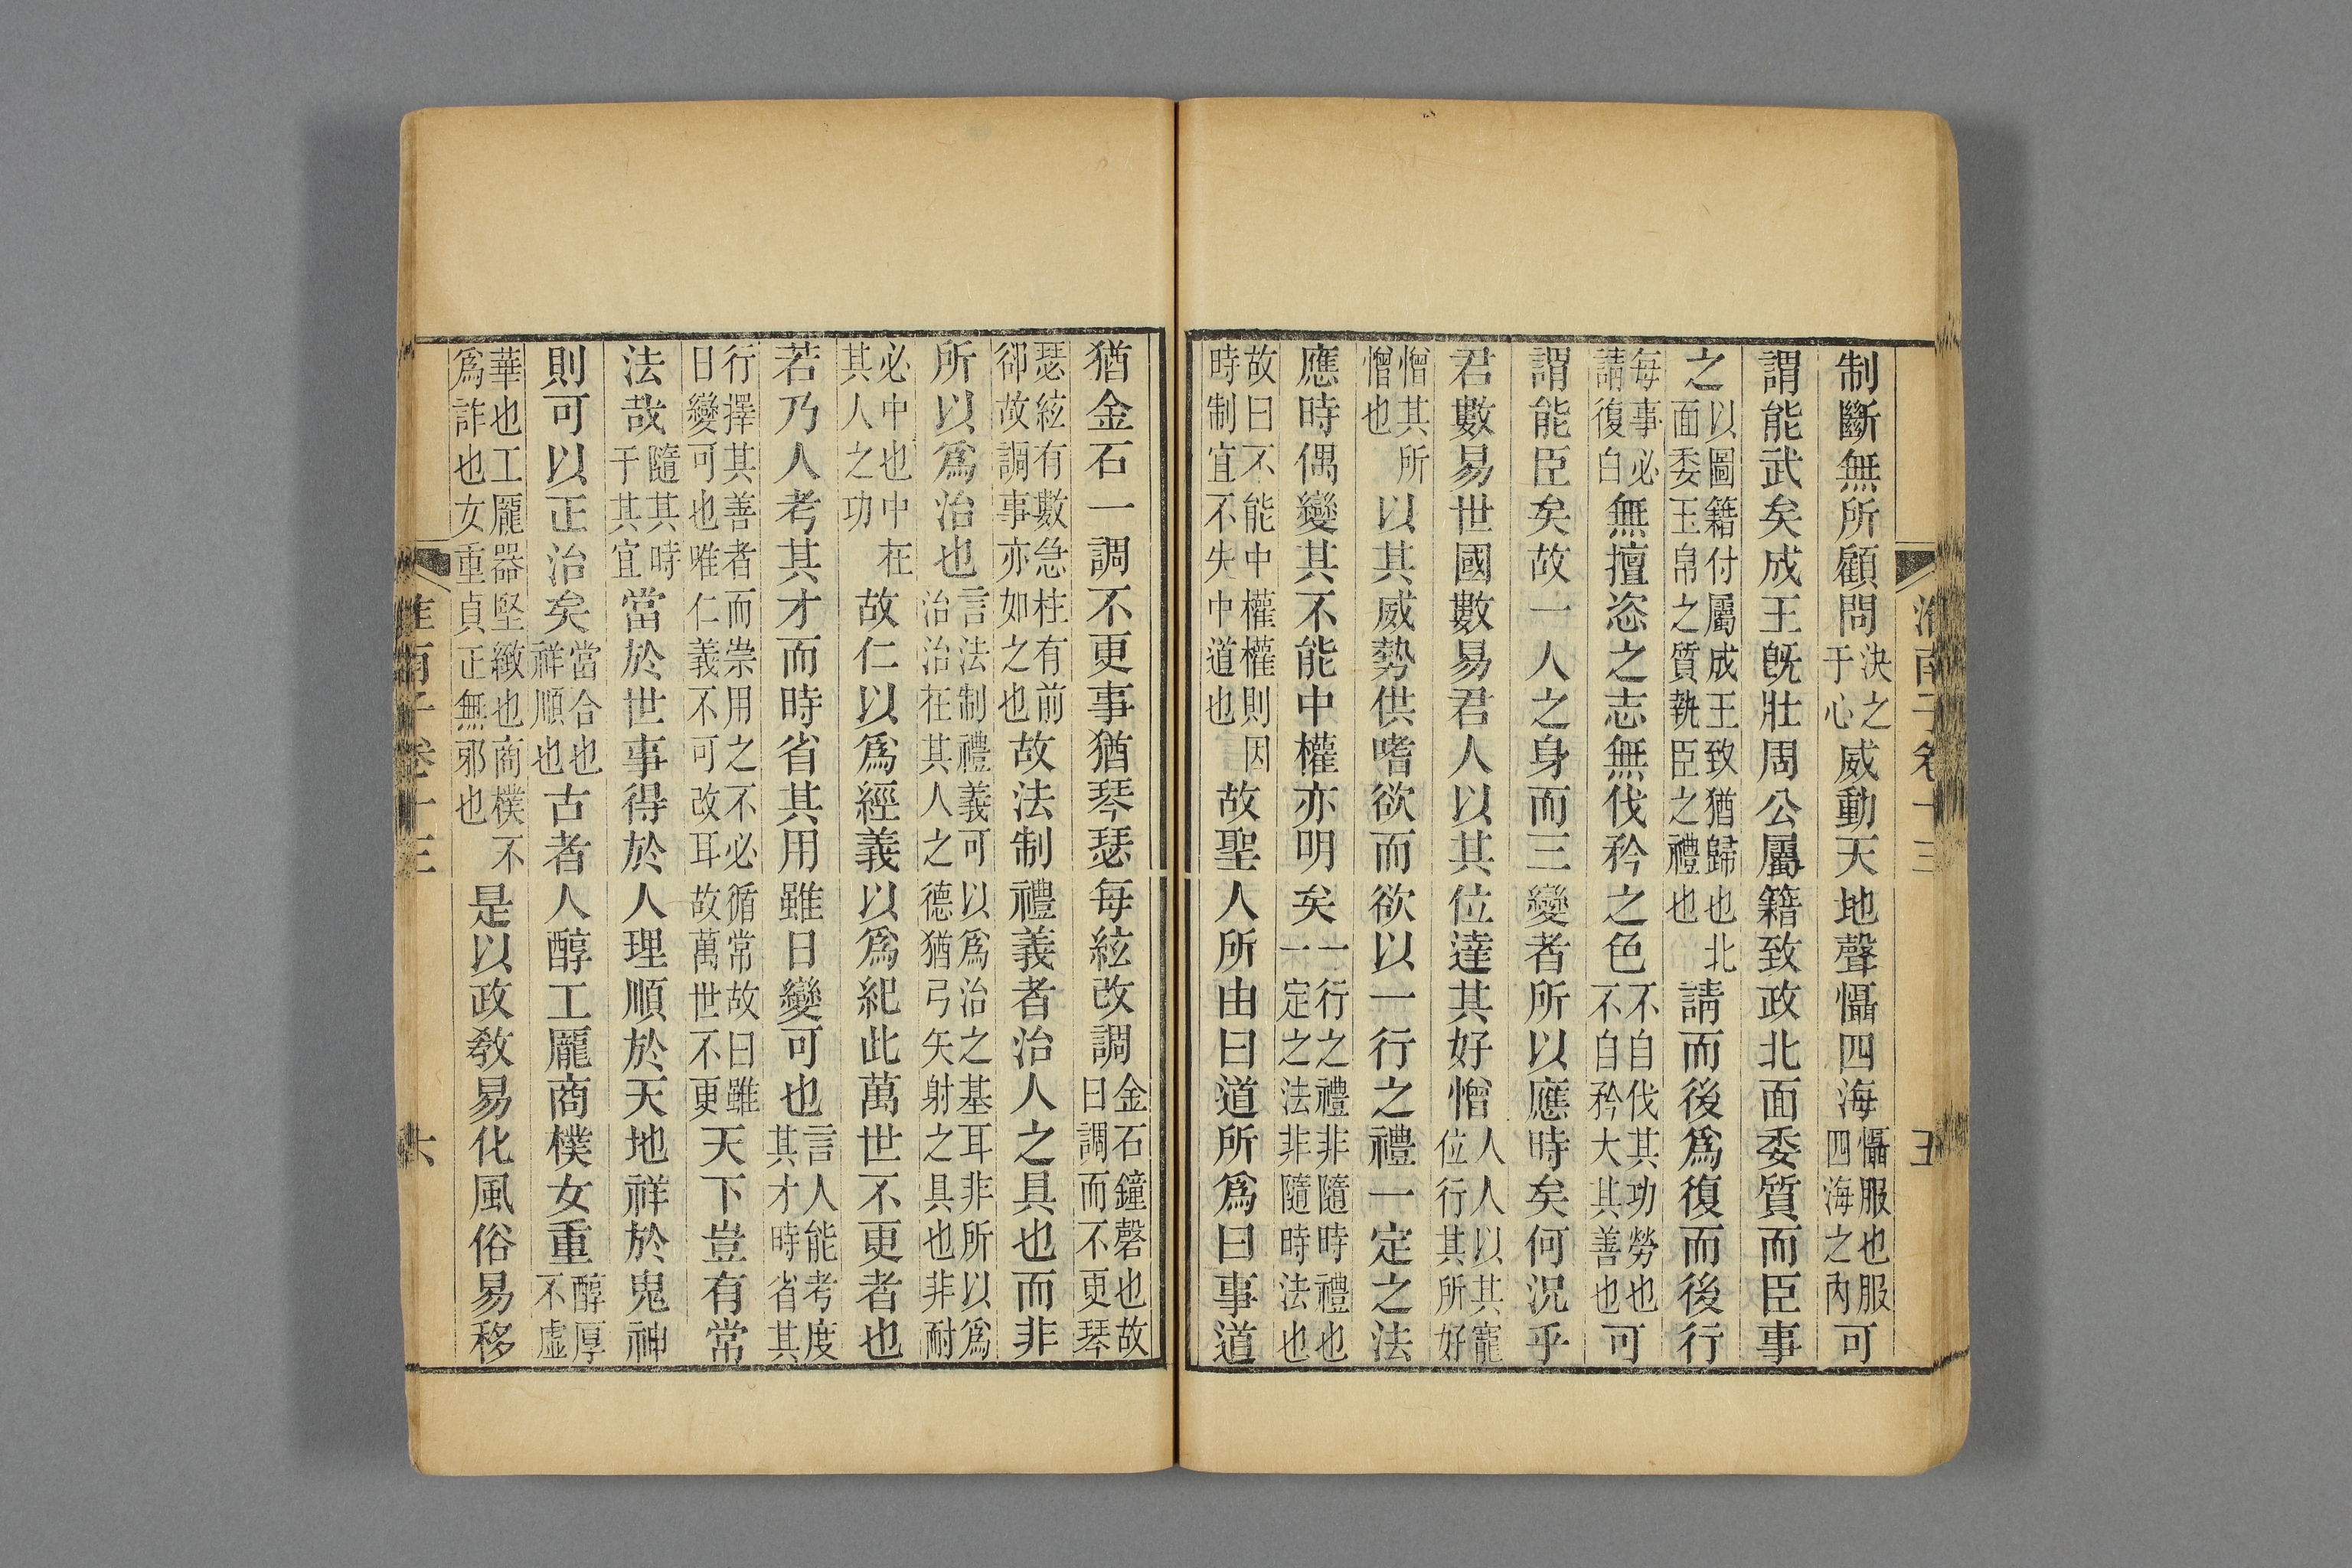 淮南子卷十三 五
制斷無所顧問決之于心威動天地聲懾四海懾服也服四海之內可
謂能武矣成王旣壯周公屬籍致政北面委質而臣事
之以圖籍付屬成王致猶歸也北面委玉帛之質執臣之禮也請而後爲復而後行
每事必請復白無擅恣之志無伐矜之色不自伐其功勞也不自矜大其善也可
謂能臣矣故一人之身而三變者所以應時矣何況乎
君數易世國數易君人以其位達其好憎人人以其寵位行其所好
憎其所憎也以其威勢供嗜欲而欲以一行之禮一定之法
應時偶變其不能中權亦明矣一行之禮非隨時禮也一定之法非隨時法也
故曰不能中權權則因時制宜不失中道也故聖人所由曰道所爲曰事道
猶金石一調不更事猶琴瑟每絃改調金石鐘磬也故曰調而不更琴
瑟絃有數急柱有前卻故調事亦如之也故法制禮義者治人之具也而非
所以爲治也言法制禮義可以爲治之基耳非所以爲治治在其人之德猶弓矢射之具也非耐
必中也中在其人之功故仁以爲經義以爲紀此萬世不更者也
若乃人考其才而時省其用雖日變可也言人能考度其才時省其
行擇其善者而崇用之不必循常故曰雖日變可也唯仁義不可改耳故萬世不更天下豈有常
法哉隨其時于其宜當於世事得於人理順於天地祥於鬼神
則可以正治矣當合也祥順也古者人醇工龎商樸女重醇厚不虛
華也工龎器堅緻也商樸不爲詐也女重貞正無邪也是以政敎易化風俗易移
淮南子卷十三 六